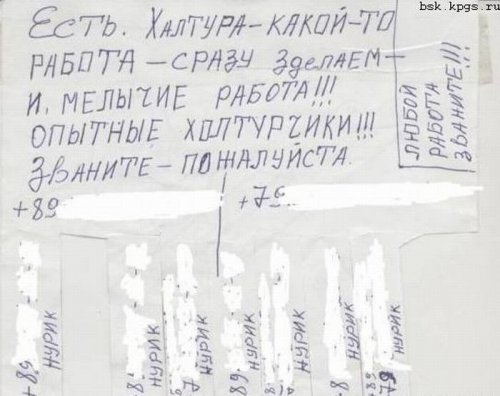 bsk.kpgs.ru
ЕСТЬ. ХАЛТУРА-КАКОЙ-ТО
РАБОТА - СРАЗУ ЗДЕЛАЕМ -
И. МЕЛЫЧИЕ РАБОТА!!!
ОПЫТНЫЕ ХОЛТУРЧИКИ!!!
ЗВАНИТЕ - ПОЖАЛУЙСТА.
ЛЮБОЙ
РАБОТА
ЗВАНИТЕ!!!
+89
+79
+89
НУРИК
-8
НУРИК
7
НУРИК
89
НУРИК
НУРИК
-8
НУРИК
+89
+79
НУРИК